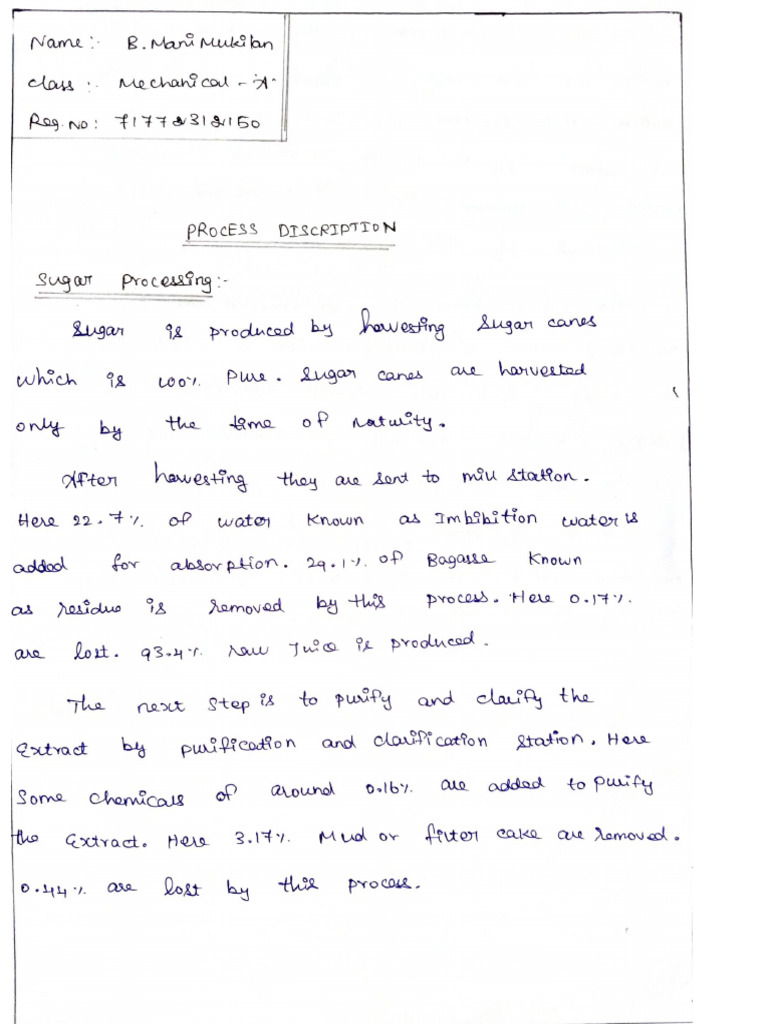 Name:- B. Mani Mukilan
Class:- Mechanical - 'A'
Reg.No: 71772312150
PROCESS DISCRIPTION
Sugar Processing:-
Sugar is produced by harvesting Sugar canes
which is 100% Pure. Sugar canes are harvested
only by the time of Maturity.
After harvesting they are sent to mill station.
Here 22.7% of water known as Imbibition water is
added for absorption. 29.1% of Bagasse known
as residue is removed by this process. Here 0.17%
are lost. 93.4% raw Juice is produced.
The next step is to purify and clarify the
Extract by purification and clarification station. Here
Some chemicals of around 0.16% are added to purify
the Extract. Here 3.17% Mud or filter cake are removed.
0.44% are lost by this process.